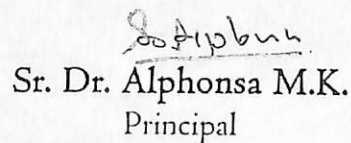 Sr. Dr. Alphonsa M.K.
Principal